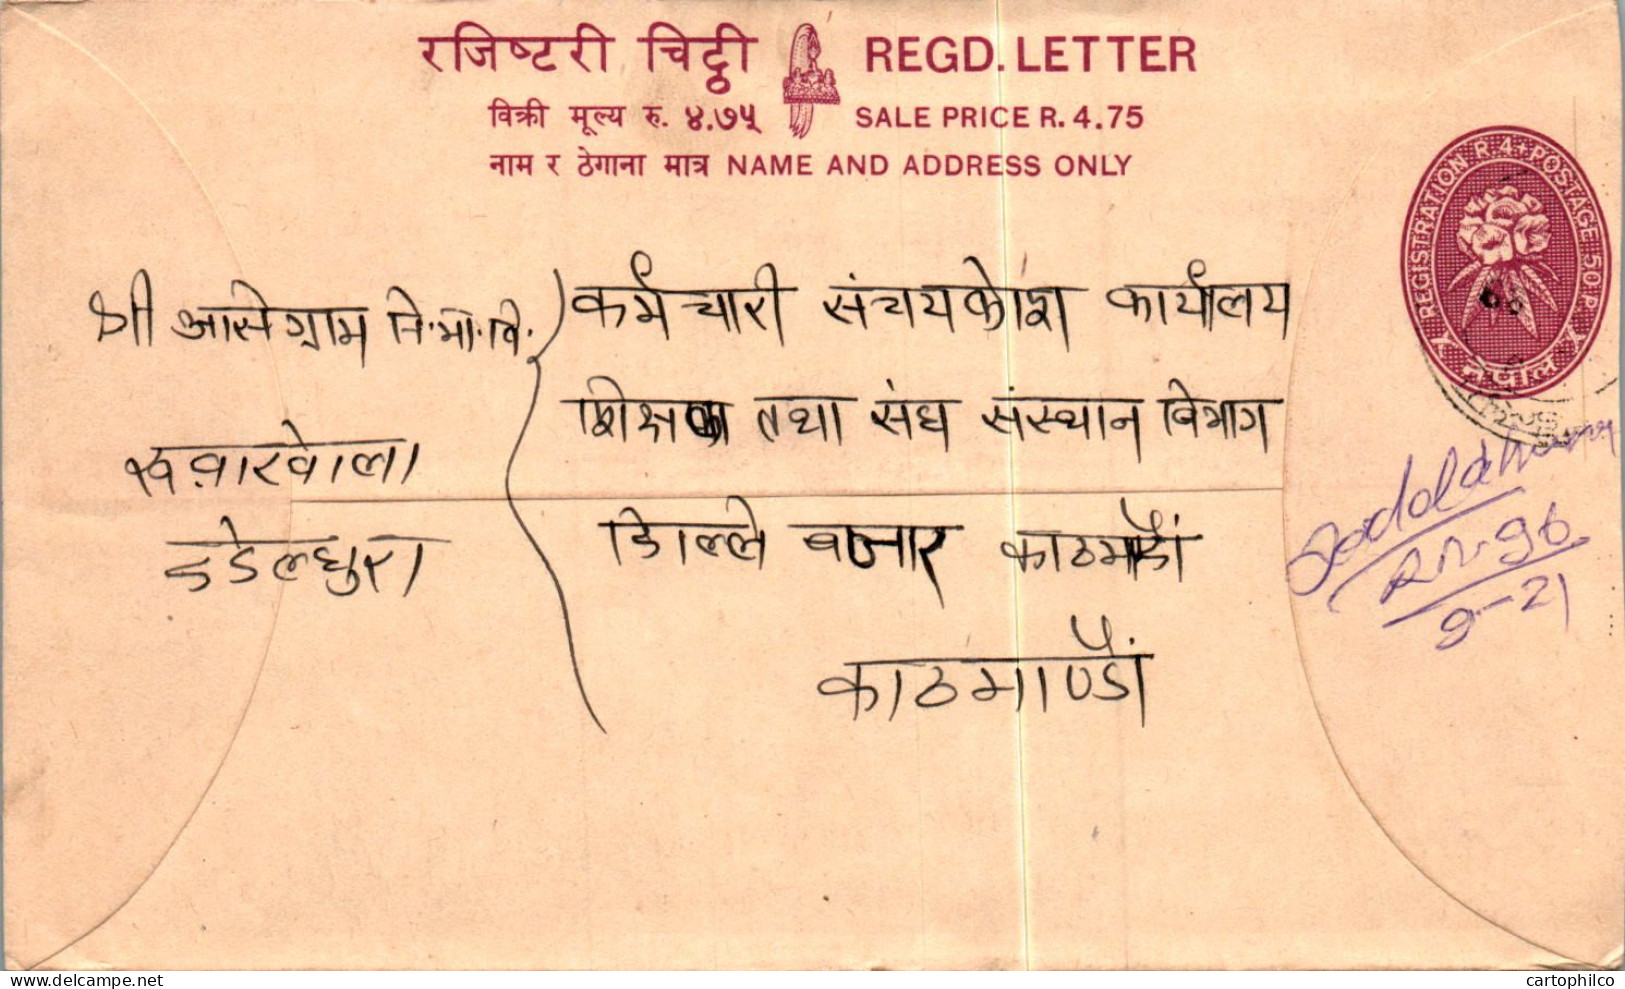 रजिष्टरी चिट्ठी REGD. LETTER
विक्री मूल्य रु. ४.७५ SALE PRICE R. 4.75
नाम र ठेगाना मात्र NAME AND ADDRESS ONLY
REGISTRATION R 4. POSTAGE 50 P.
नेपाल
श्री आसेग्राम नि.मा.वि.
डडेलधुरा
कर्मचारी संचयकोश कार्यालय
शिक्षक तथा संघ संस्थान विभाग
डिल्ले बजार काठमाडौं
काठमाण्डौं
R.N. 96
9-21
delcampe.net
cartophilco